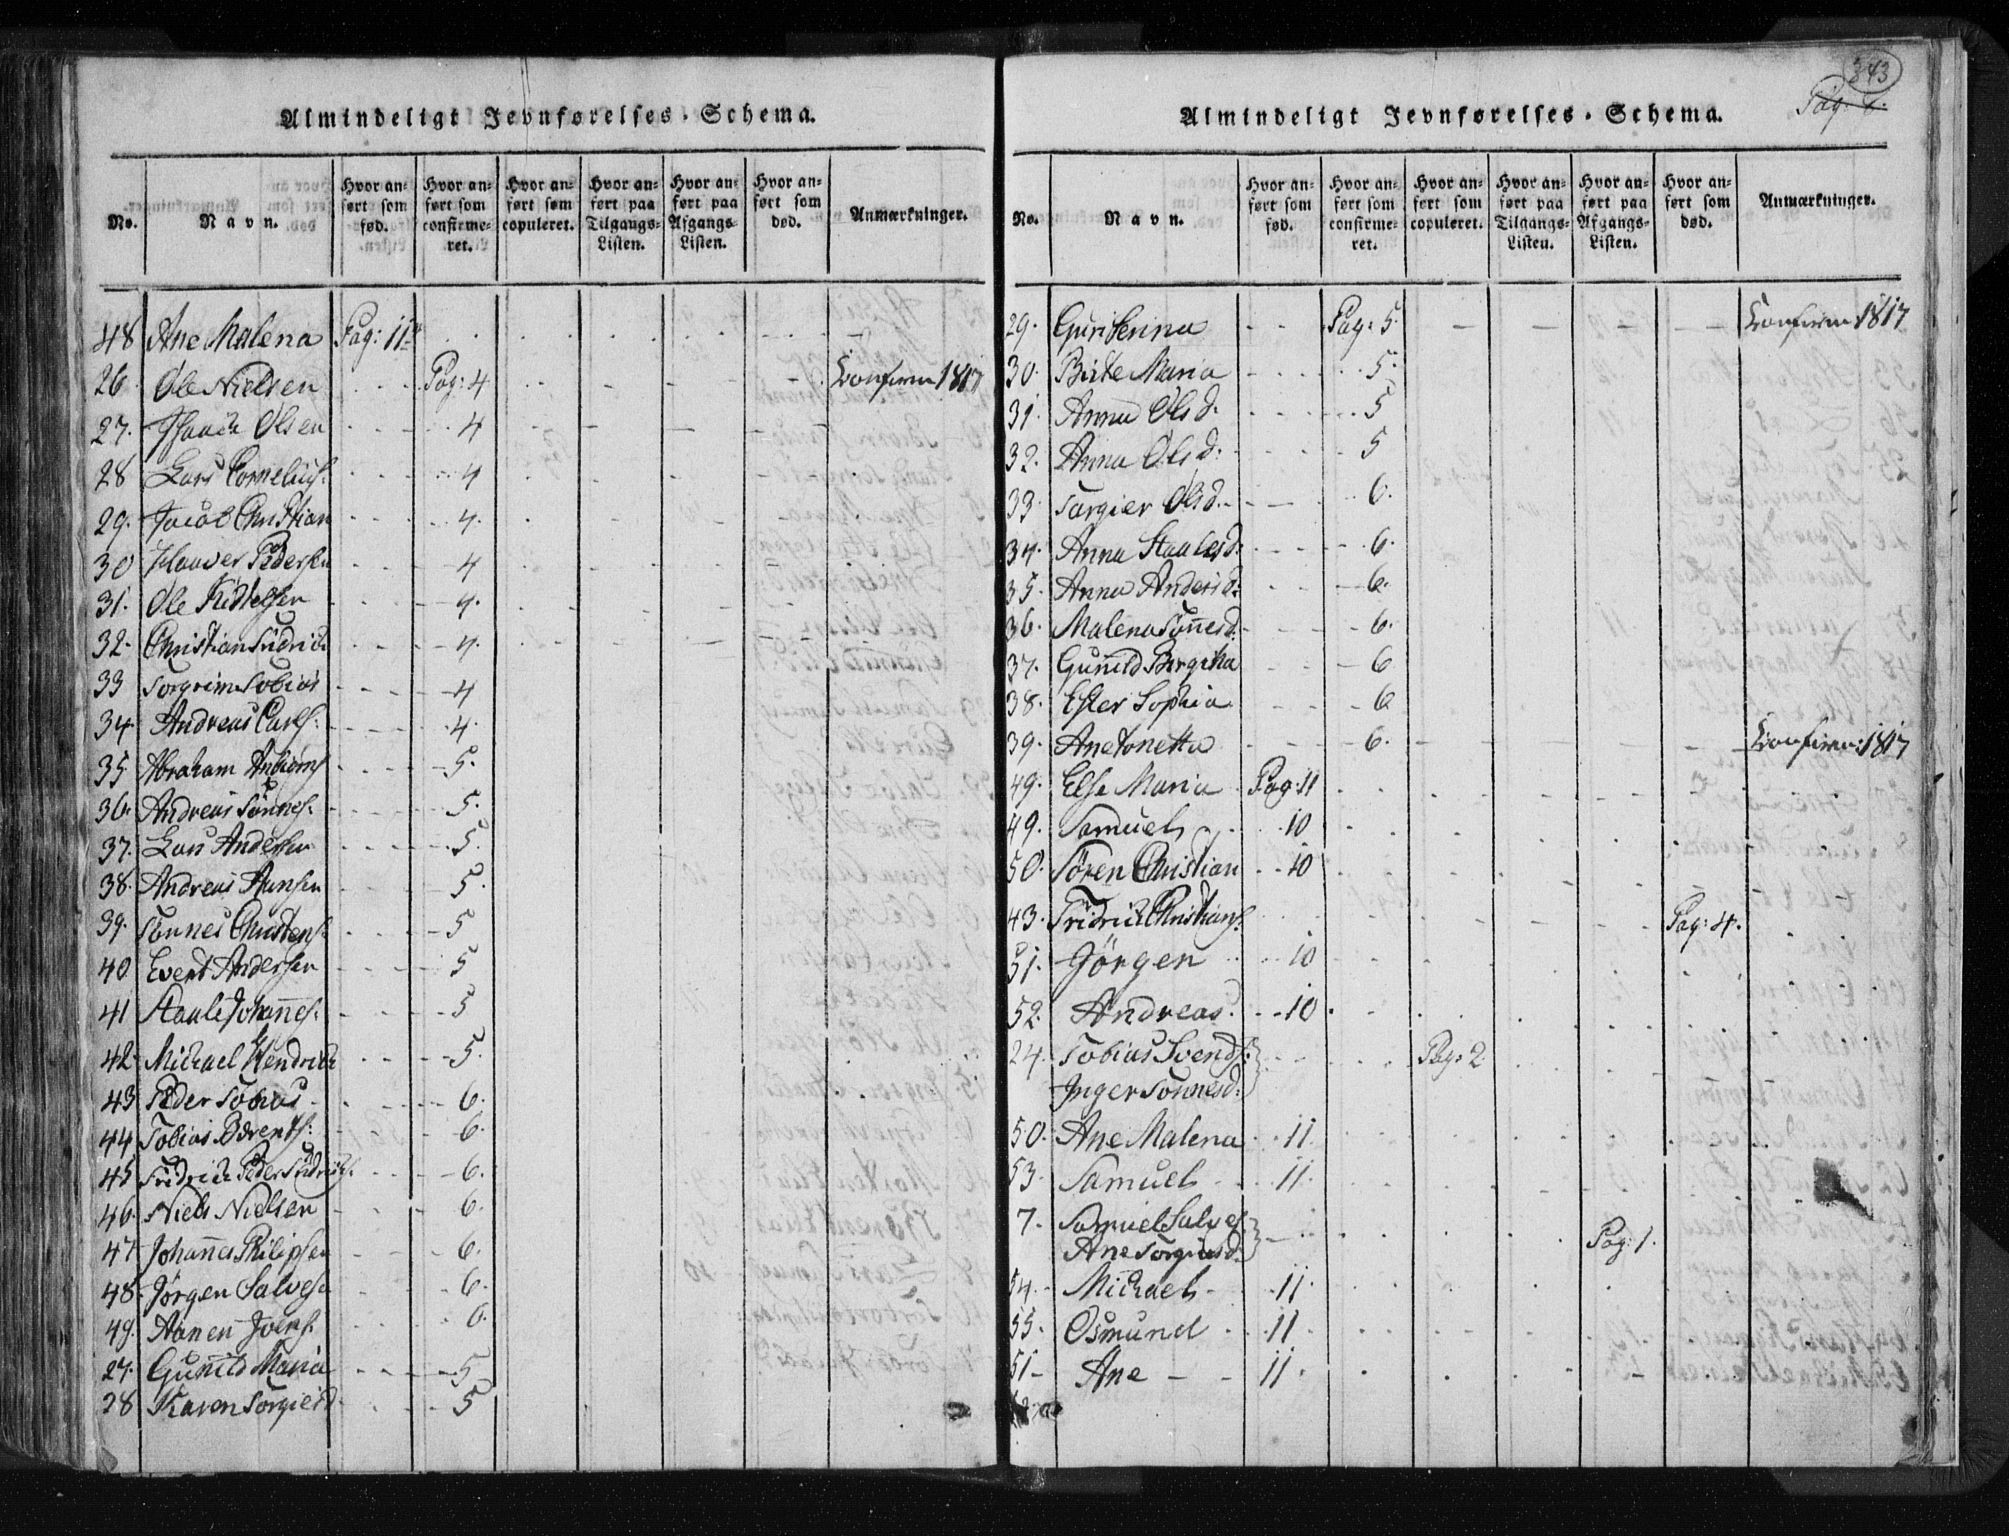 Almindeligt Jevnførelses-Schema.
No. Navn. Hvor anført som fød. Hvor anført som confirmeret. Hvor anført som copuleret. Hvor anført paa Tilgangs-Listen. Hvor anført paa Afgangs-Listen. Hvor anført som død. Anmærkninger.
48 Ane Malena Pag: 11
26. Ole Nielsen Pag: 4 Confirm 1817
27. Olsen 4
28 Lars Cornelius: 4
29. Jacob Christian 4.
30 Haaver Pedersen 4
31. Ole Kittelsen 4.
32. Christian Fridrich 4.
33 Torgrim Tobias 4
34. Andreas Carls: 4.
35 Abraham 5.
36. Andreas Tönnes: 5.
37. Lars Andersen 5.
38. Andreas Hansen 5.
39. Tönnes Christens: 5
40 Evert Andersen 5
41 Staale Johannes: 5
42. Michael Hendrich 5.
43 Peder Tobias 6.
44 Tobias Berents: 6.
45 Fridrich Peder Fridrichs: 6.
46. Niels Nielsen 6.
47 Johannes Philipsen 6.
48. Jörgen Salves: 6.
49. Aanen Joens: 6.
27. Gunild Maria 5
28 Karen Torgiersd 5
343
Pag: 6.
Almindeligt Jevnførelses-Schema.
No. Navn. Hvor anført som fød. Hvor anført som confirmeret. Hvor anført som copuleret. Hvor anført paa Tilgangs-Listen. Hvor anført paa Afgangs-Listen. Hvor anført som død. Anmærkninger.
29. Guri Serina Pag: 5. Confirm: 1817
30. Birte Maria 5.
31. Anna Olsd. 5
32. Anna Olsd. 5
33. Torgier Olsd. 6.
34. Anna Staalesd: 6.
35. Anna Andersd: 6.
36. Malena Tönnesd: 6.
37. Gunild Birgitha 6
38. Ester Sophia 6
39. Ane Tonetta 6. Confirm: 1817
49. Else Maria Pag: 11
49. Samuel 10
50. Sören Christian 10
43. Fridrich Christians: Pag: 4.
51. Jörgen 10
52. Andreas 10.
24. Tobias Svends: Pag: 2
Inger Tönnesd:
50. Ane Malena 11.
53. Samuel 11.
7. Samuel Salves: Pag: 1.
Ane Torgiersd:
54. Michael 11.
55. Osmund 11.
51 Ane 11.